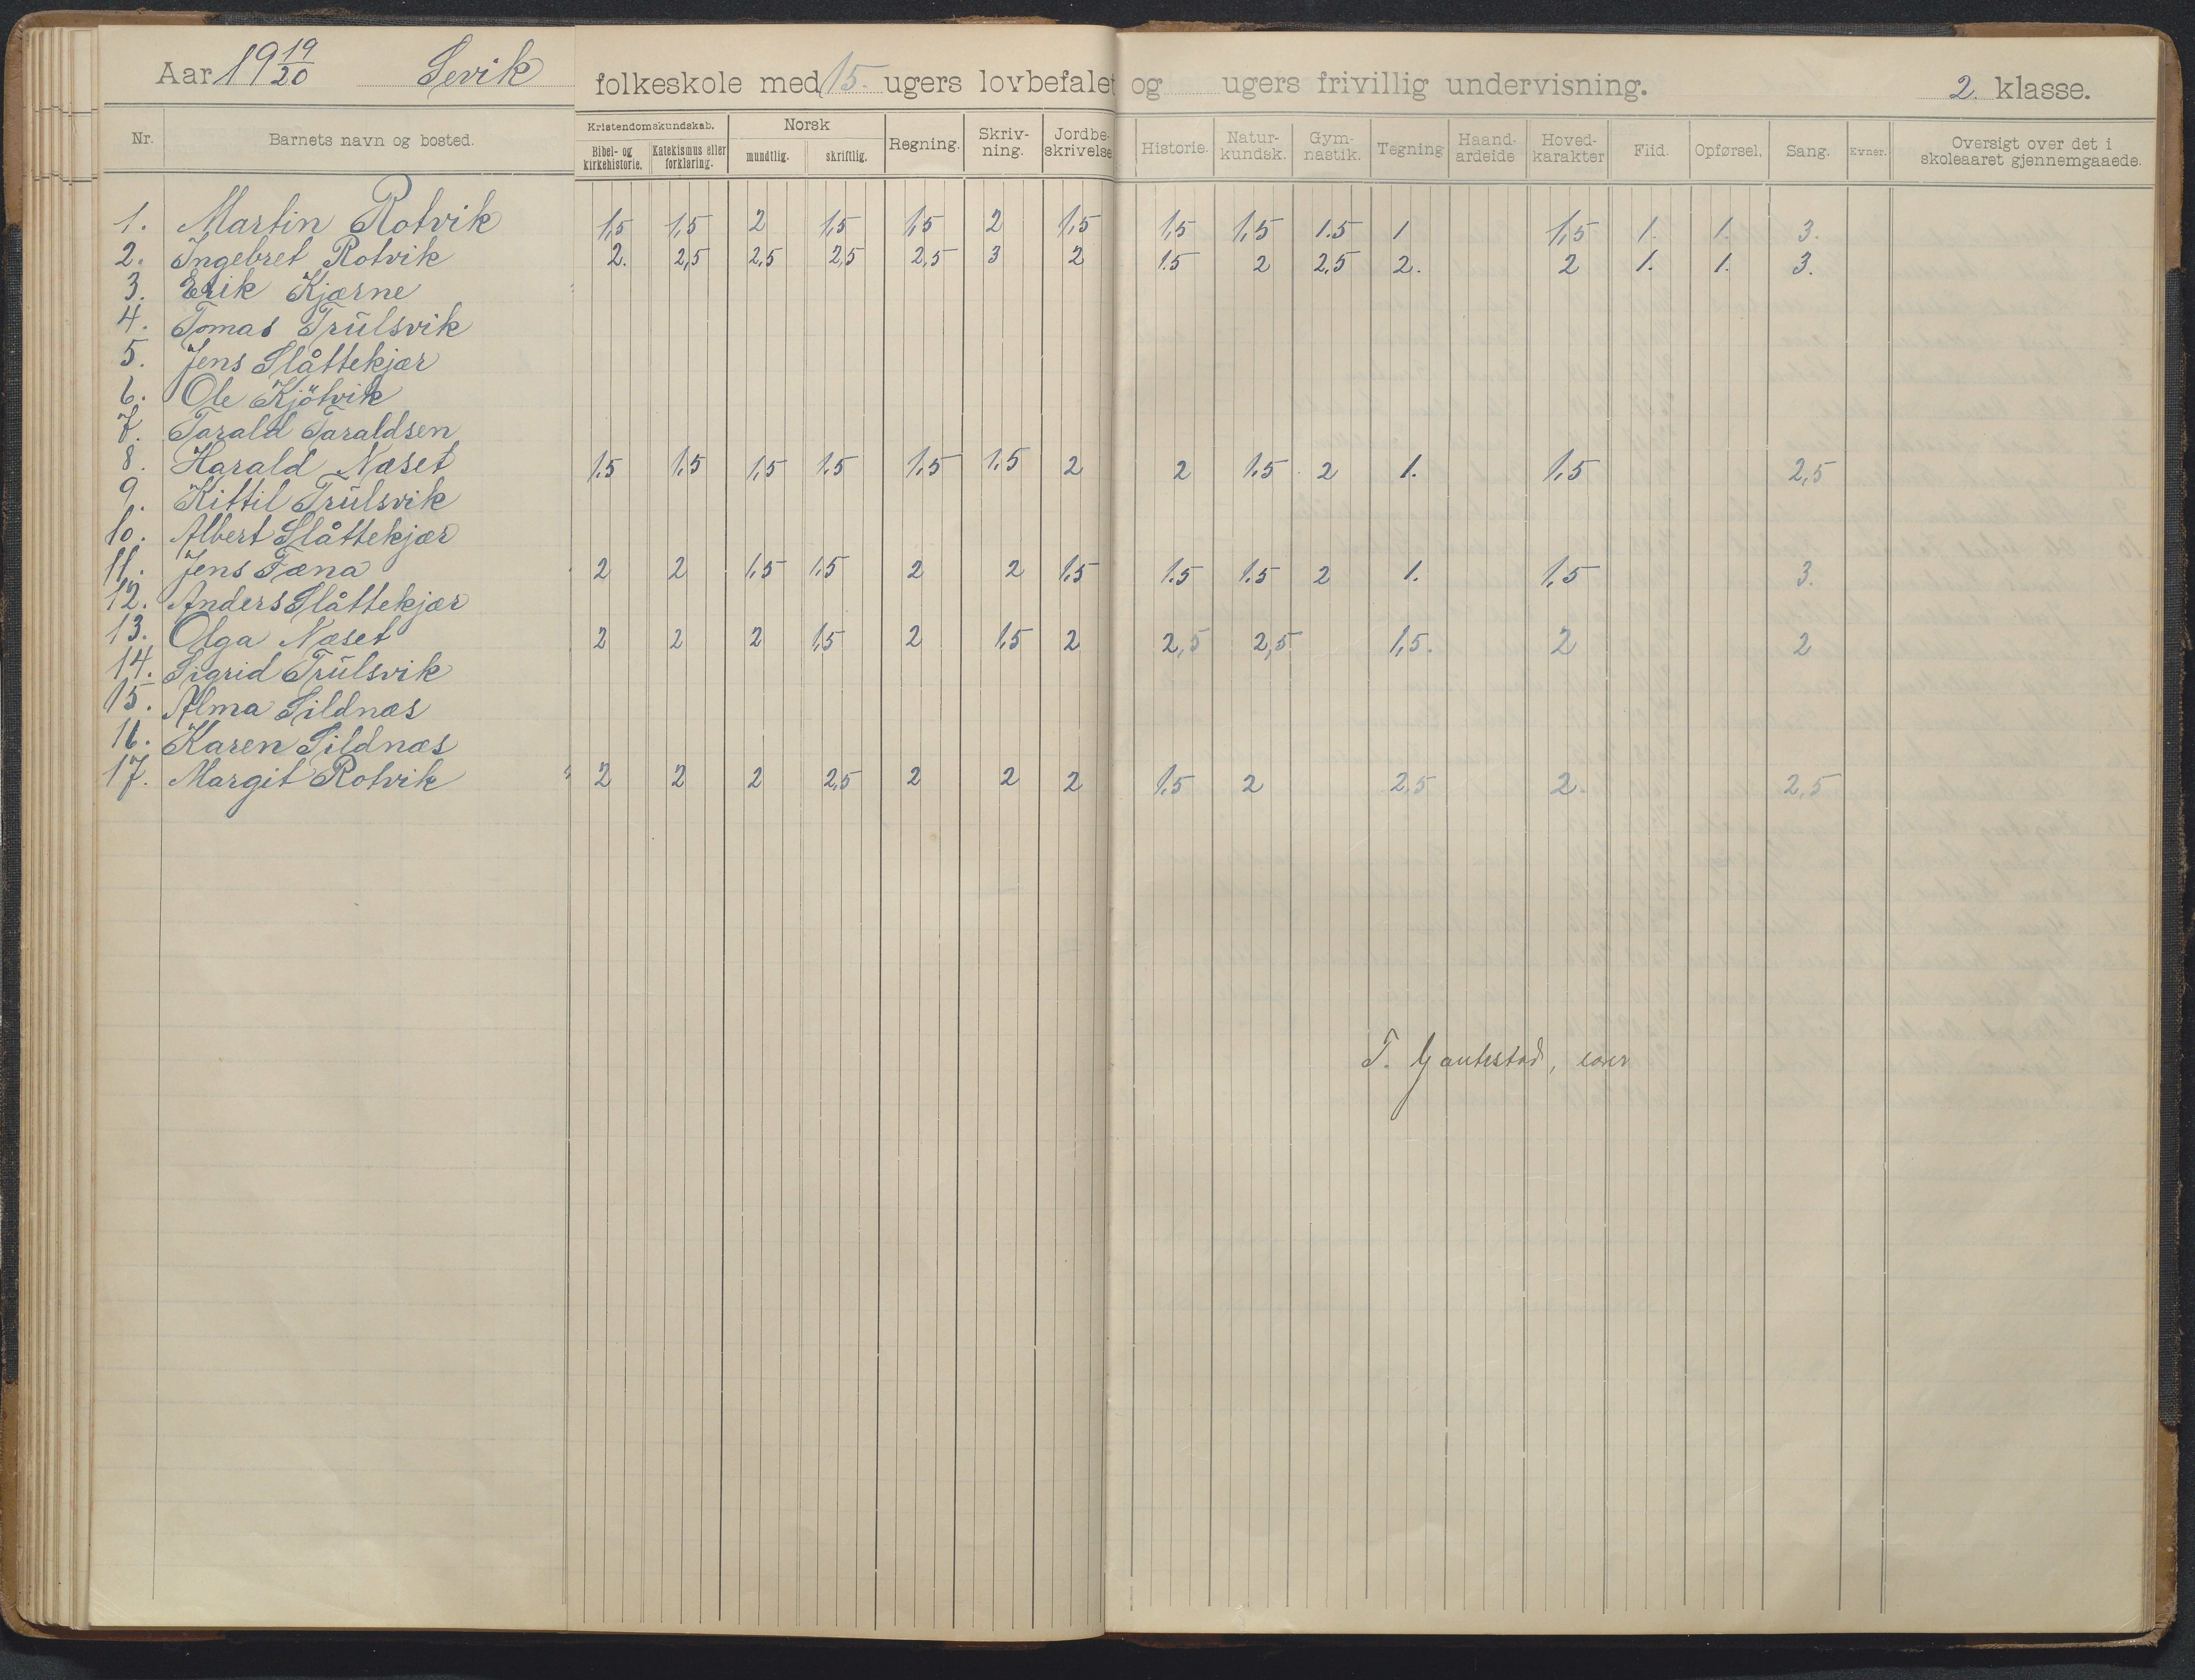 Aar 19 19/20 Sevik folkeskole med 15. ugers lovbefalet og ugers frivillig undervisning. 2. klasse.
Nr. Barnets navn og bosted. Kristendomskundskab. Bibel- og kirkehistorie. Katekismus eller forklaring. Norsk mundtlig. skriftlig. Regning. Skriv-ning. Jordbe-skrivelse Historie. Natur-kundsk. Gym-nastik. Tegning Haand-arbeide Hoved-karakter Flid. Opførsel. Sang. Evner. Oversigt over det i skoleaaret gjennemgaaede.
1. Martin Rotvik 1,5 1,5 2 1,5 1,5 2 1,5 1,5 1,5 1.5 1 1,5 1. 1. 3.
2. Ingebret Rotvik 2. 2,5 2,5 2,5 2,5 3 2 1.5 2 2,5 2. 2 1. 1. 3.
3. Erik Kjærne
4. Tomas Trulsvik
5. Jens Slåttekjær
6. Ole Kjötvik
7. Tarald Taraldsen
8. Harald Næset 1.5 1,5 1,5 1.5 1,5 1,5 2 2 1,5 2 1. 1,5 2,5
9. Kittil Trulsvik
10. Albert Slåttekjær
11. Jens Fæna 2 2 1,5 1.5 2 2 1,5 1.5 1.5 2 1. 1,5 3.
12. Anders Slåttekjær
13. Olga Næset 2 2 2 1,5 2 1,5 2 2,5 2,5 1,5. 2 2
14. Sigrid Trulsvik
15. Alma Sildnæs
16. Karen Sildnæs
17. Margit Rotvik 2 2 2 2,5 2 2 2 1,5 2 2,5 2. 2,5
T.